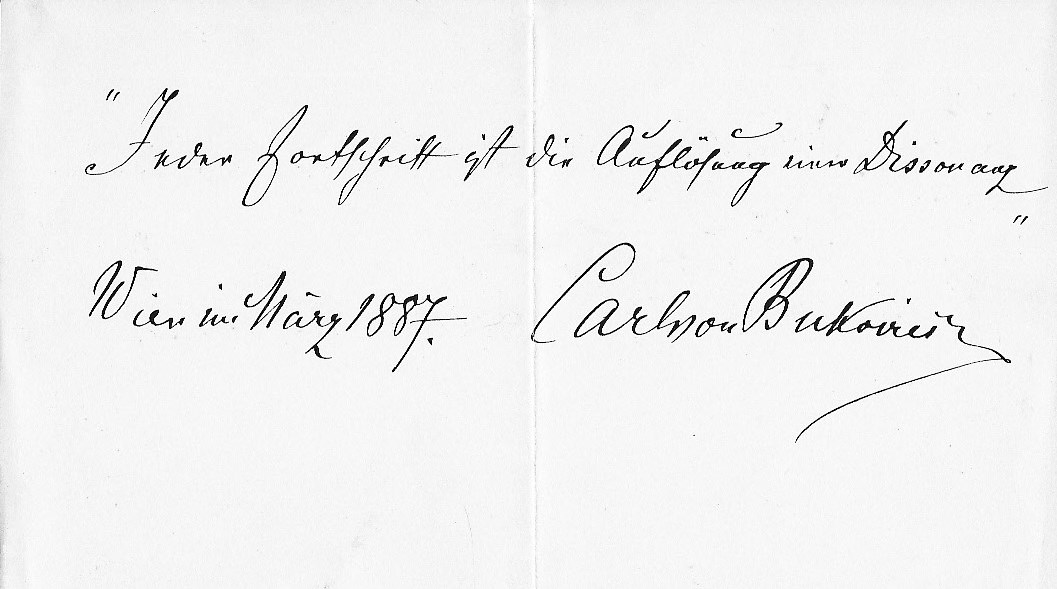 "Jeder Fortschritt ist die Auflösung einer Dissonanz"
Wien im März 1887. Carl von Bukovics